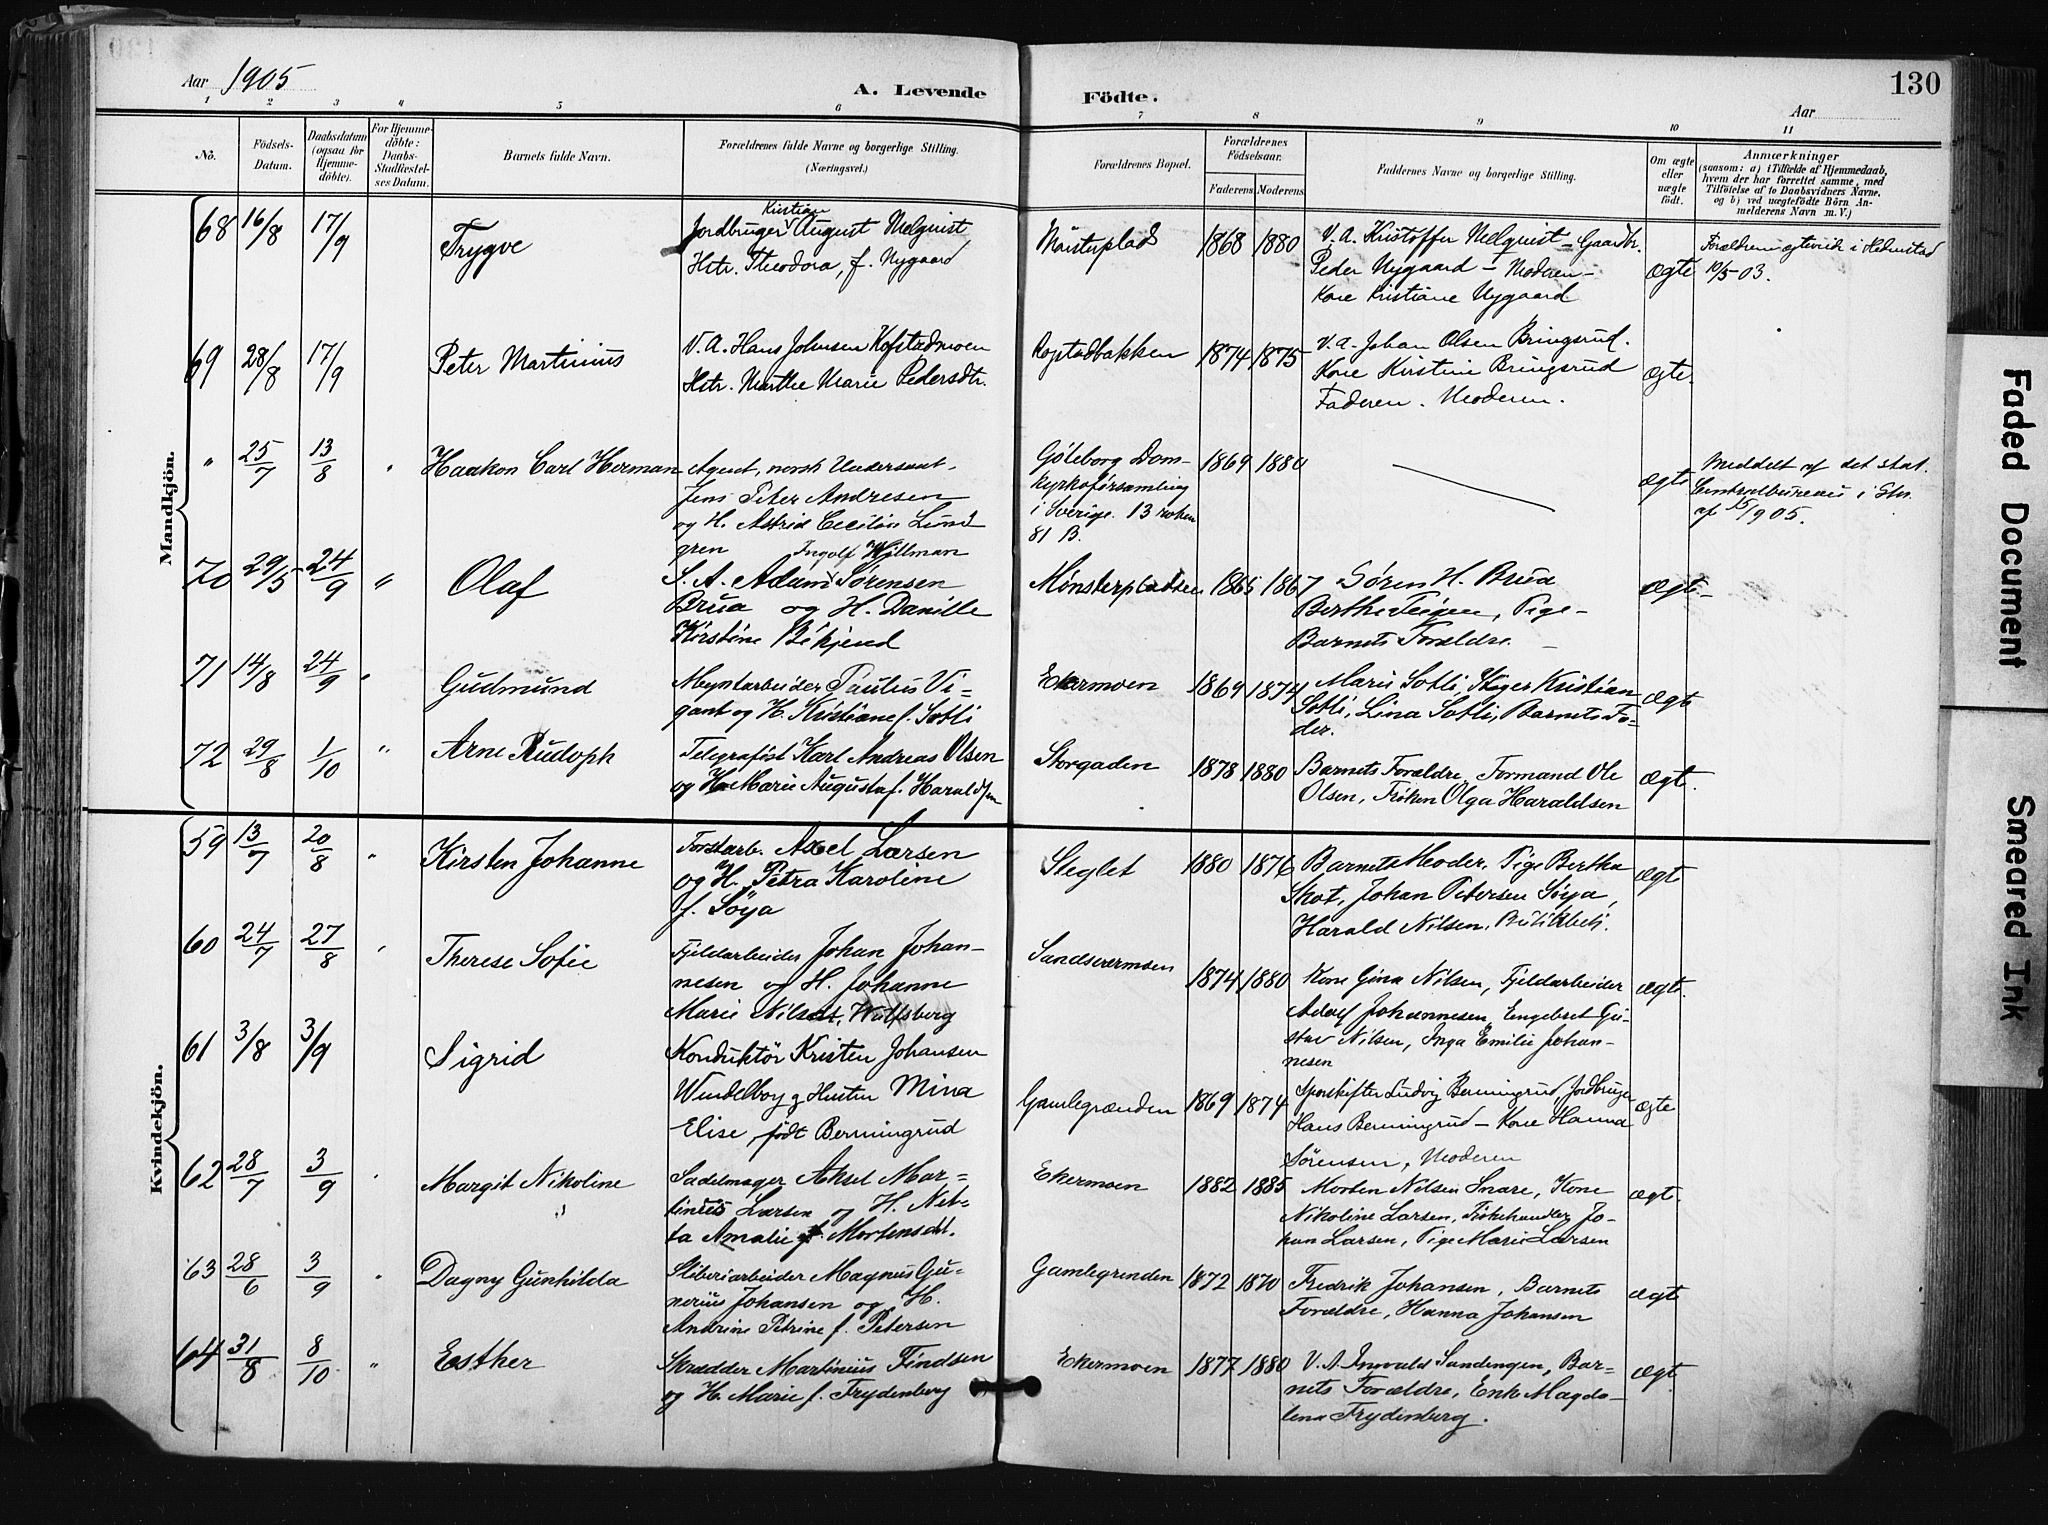 130
Aar 1905
A. Levende
Födte.
Aar
1 2 3 4 5 6 7 8 9 10 11
No.
Födsels-
Datum.
Daabsdatum
(ogsaa for
Hjemme-
döbte).
For Hjemme-
döbte:
Daabs-
Stadfæstel-
ses Datum.
Barnets fulde Navn.
Forældrenes fulde Navne og borgerlige Stilling.
(Næringsvei.)
Forældrenes Bopæl.
Forældrenes
Födselsaar.
Faderens.
Moderens.
Faddernes Navne og borgerlige Stilling.
Om ægte
eller
uægte
födt.
Anmærkninger
(saasom: a) i Tilfælde af Hjemmedaab,
hvem der har forrettet samme, med
Tilföielse af to Daabsvidners Navne,
og b) ved uægtefödte Börn An-
melderens Navn m. V.)
Mandkjön.
68 16/8 17/9 Trygve
Kristian
Jordbruger August Melquist
Hstr. Theodora, f. Nygaard
Mønsterplads 1868 1880
V. A. Kristoffer Melquist – Gaardbr.
Peder Nygaard – Moderen –
Kone Kristiane Nygaard
ægte
Forældrene ægteviet i Hedenstad
10/5 03.
69 28/8 17/9 Peter Martinius
V. A. Hans Johnsen Kofstadmoen
Hstr. Marthe Marie Pedersdtr.
Ropstadbakken 1874 1875
V. a. Johan Olsen Bringsrud.
Kone Kirstine Bringsrud
Faderen. Moderen.
ægte.
" 25/7 13/8 " Haakon Carl Herman
Agent, norsk Undersaat,
Jens Peter Andresen
og H. Astrid Cecilia Lund
gren
Göteborg Dom-
kyrkoförsamling
i Sverige. 13 roten
81 B.
1869 1880
ægte
Meddelt af det stat.
Centralbureau i
1905.
70 29/5 24/9 " Olaf
Ingolf Hillman
S. A. Adam Sørensen
Brua og H. Danille
Kirstine Bekjend
Mønsterpladsen 1865 1867
Søren H. Brua
Berthe Teigen, Pige –
Barnets Forældre. –
ægte.
71 14/8 24/9 " Gudmund
Myntarbeider Paulus Vi-
gant og H. Kristiane f. Sotli
Ekermoen 1869 1874
Marie Sotli, Kristian
Sotli, Lina Sotli, Barnets Fa-
der.
ægte
72 29/8 1/10 " Arne Rudoph
Telegrafist Karl Andreas Olsen
og H. Marie Augusta f. Haraldsen
Storgaden 1878 1880
Barnets Forældre, Formand Ole
Olsen, Frøken Olga Haraldsen
ægte.
Kvindekjön.
59 13/7 20/8 " Kirsten Johanne
Forstarb. Axel Larsen
og H. Petra Karoline
f. Søya
Steglet 1880 1876
Barnets Moder. Pige Bertha
Skot, Johan Petersen Søya,
Harald Nilsen, Butikbetj.
ægte
60 24/7 27/8 " Therese Sofie
Fjeldarbeider Johan Johan-
nesen og H. Johanne
Marie Nilsdt. Wulfsberg
Sandsværmoen 1874 1880
Kone Gina Nilsen, Fjeldarbeider
Adolf Johannesen, Engebret Gu-
stav Nilsen, Inga Emilie Johan-
nesen
ægte.
61 3/8 3/9 Sigrid
Konduktör Kristen Johansen
Wendelboy og Hustru Mina
Elise, født Berningrud
Gamlegrænden 1869 1874
Sporskifter Ludvig Berningrud, Jordbruger
Hans Berningrud – Kone Hanna
Sørensen, Moderen
ægte
62 28/7 3/9 " Margit Nikoline
Sadelmager Aksel Mar-
tinius Larsen og H. Net-
ta Amalie f. Mortensdt.
Ekermoen 1882 1885
Morten Nilsen Snare, Kone
Nikoline Larsen, Fiskehandler Jo-
han Larsen, Pige Marie Larsen
ægte.
63 28/6 3/9 " Dagny Gunhilda
Sliberiarbeider Magnus Gu-
nerius Johansen og H.
Andrine Petrine f. Petersen
Gamlegrenden 1872 1870
Fredrik Johansen, Barnets
Forældre, Hanna Johansen
ægte
64 31/8 8/10 " Esther
Skrædder Martinius Findsen
og H. Marie f. Frydenberg
Ekermoen 1877 1880
V. A. Ingvald Sandengen, Bar-
nets Forældre, Enke Magda-
lena Frydenberg.
ægte.
Faded Document
Smeared Ink